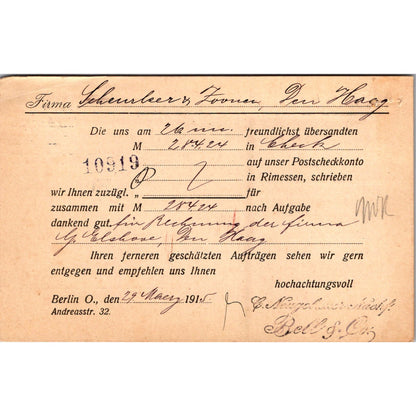 Firma Scheurleer & Zoonen, Den Haag
Die uns am 26 m. freundlichst übersandten
M 284 24 in Check
10919 „ auf unser Postscheckkonto
„ in Rimessen, schrieben
wir Ihnen zuzügl. „ für
zusammen mit M 284 24 nach Aufgabe
dankend gut. für Rechnung der Firma
Den Haag
Ihren ferneren geschätzten Aufträgen sehen wir gern
entgegen und empfehlen uns Ihnen
hochachtungsvoll
Berlin O., den 29 Maerz 1915
Andreasstr. 32.